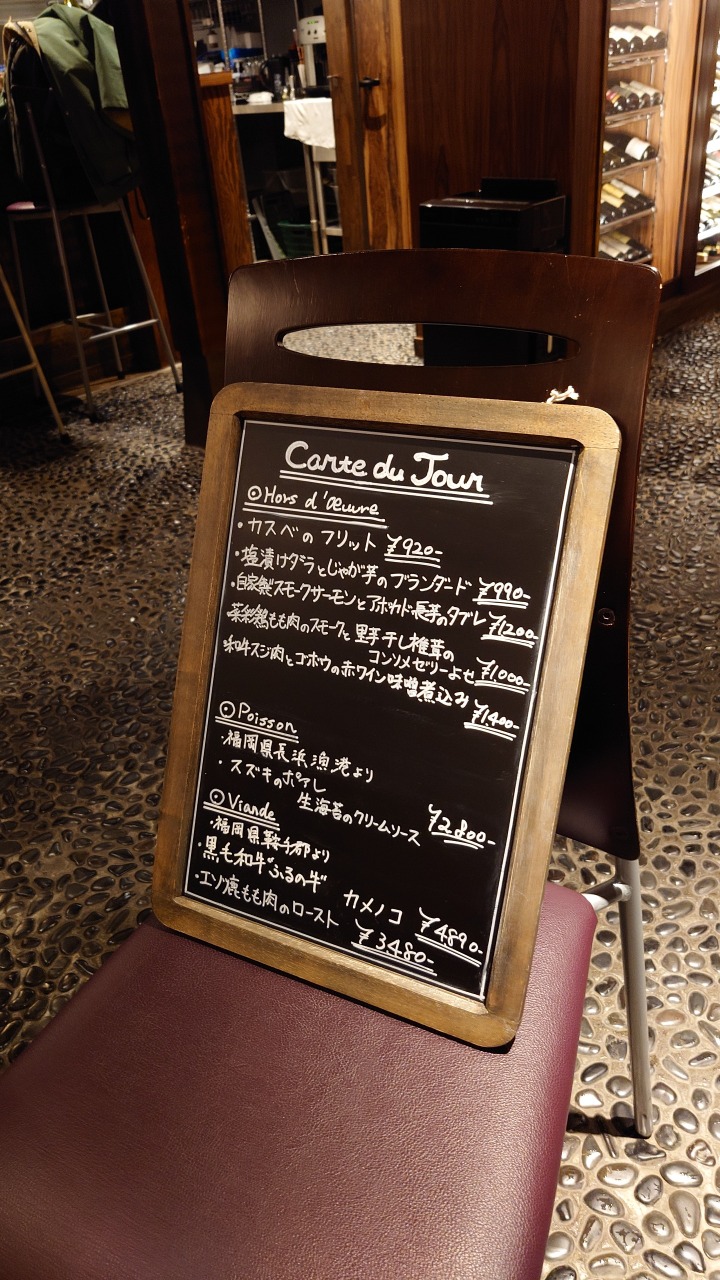 Carte du Jour
⦿Hors d'œuvre
・カスベのフリット ¥920-
・塩漬けダラとじゃが芋のブランダード ¥990-
・自家製スモークサーモンとアボカド長芋のタブレ ¥1200-
茶彩鶏もも肉のスモークと里芋干し椎茸の
コンソメゼリーよせ ¥1000-
和牛スジ肉とゴボウの赤ワイン味噌煮込み
¥1400-
⦿Poisson
・福岡県長浜漁港より
・スズキのポアレ
生海苔のクリームソース ¥2800-
⦿Viande
・福岡県鞍手郡より
・黒毛和牛“ふるの牛”
カメノコ ¥4890-
・エゾ鹿もも肉のロースト ¥3480-